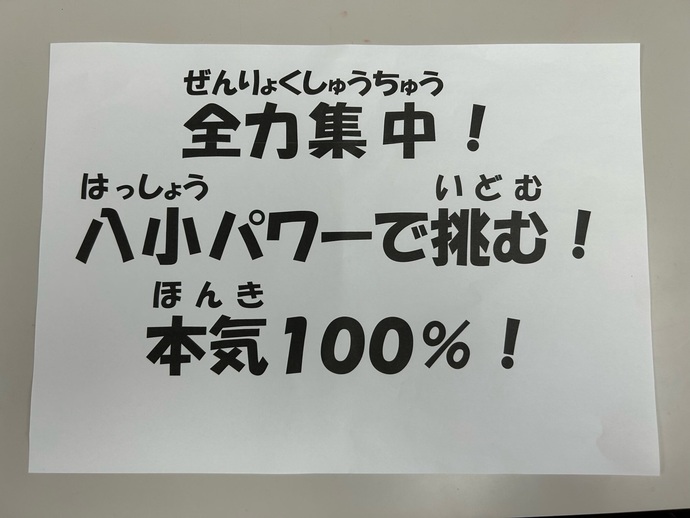 ぜんりょくしゅうちゅう
全力集中！
はっしょう いどむ
八小パワーで挑む！
ほんき
本気100%！